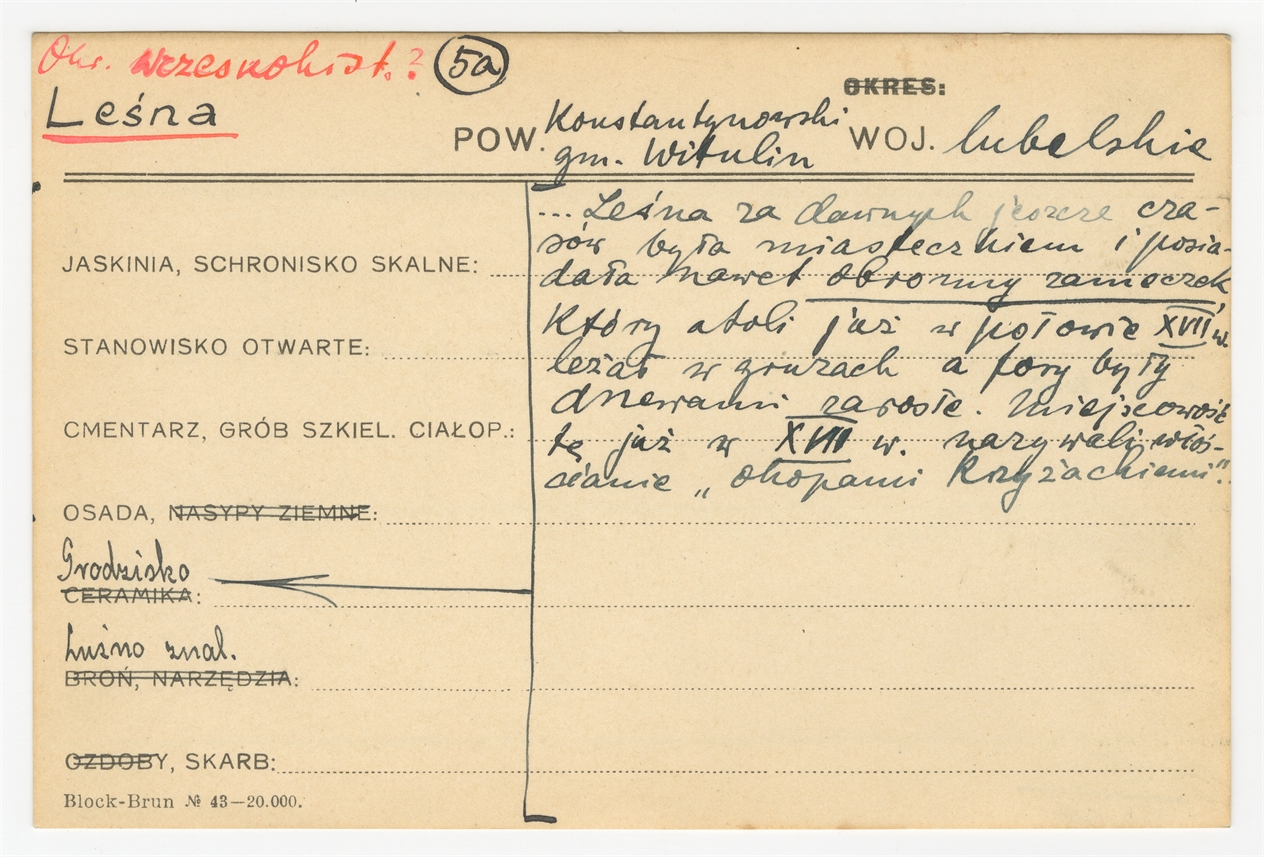 Okr. wczesnohist.? 5a
OKRES:
Leśna
POW. Konstantynowski WOJ. lubelskie
gm. Witulin
... Leśna za dawnych jeszcze cza-
sów była miasteczkiem i posia-
JASKINIA, SCHRONISKO SKALNE:
dała nawet obronny zameczek,
który atoli już w połowie XVII w.
STANOWISKO OTWARTE:
leżał w gruzach a fosy były
drzewami zarosłe. Miejscowość
CMENTARZ, GRÓB SZKIEL. CIAŁOP.:
tę już w XVIII w. nazywali włoś-
cianie „okopami Krzyżackiemi".
OSADA, NASYPY ZIEMNE:
Grodzisko
CERAMIKA:
Luźno znal.
BROŃ, NARZĘDZIA:
OZDOBY, SKARB:
Block-Brun № 43—20.000.